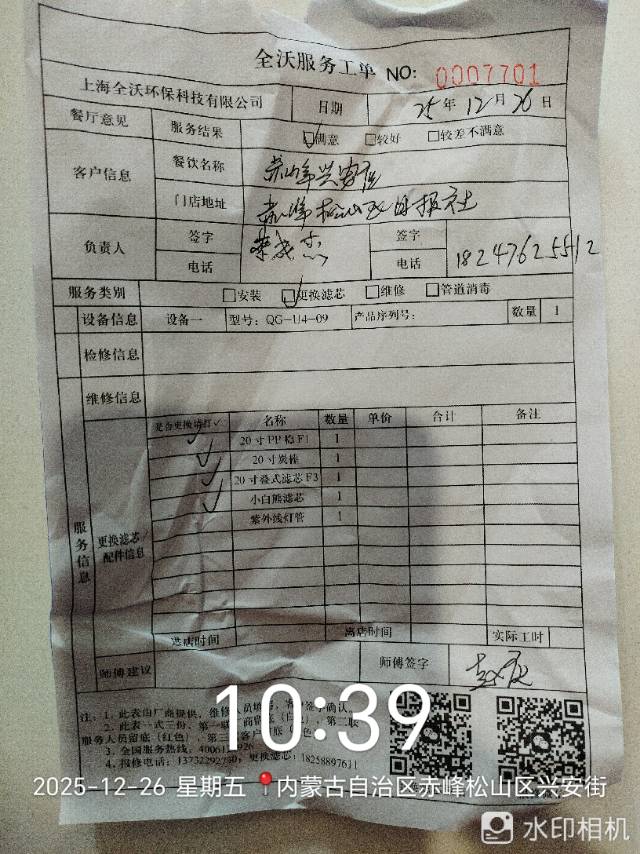 全沃服务工单 NO: 0007701
上海全沃环保科技有限公司 日期 25年12月26日
餐厅意见 服务结果 满意 较好 较差不满意
客户信息 餐饮名称 赤峰兴安店
门店地址 赤峰松山区
负责人 签字 签字
电话 电话 18247625512
服务类别 安装 更换滤芯 维修 管道消毒
设备信息 设备一 型号: QG-U4-09 产品序列号: 数量 1
检修信息
维修信息
服务信息 更换滤芯/配件信息
是否更换请打✓ 名称 数量 单价 合计 备注
✓ 20寸PP棉F1 1
✓ 20寸炭棒 1
✓ 20寸叠式滤芯F3 1
✓ 小白熊滤芯 1
紫外线灯管 1
进店时间 离店时间 实际工时
师傅建议 师傅签字
注: 1. 此表由厂商提供, 维修
2. 此表一式三份, 第一联 商留底(白色), 第二联
服务人员留底(红色), 第三 客户
3. 全国服务热线: 400611 926
4. 报修电话: 13732292750, 更换滤芯: 18258897631
10:39
2025-12-26 星期五 内蒙古自治区赤峰松山区兴安街
水印相机